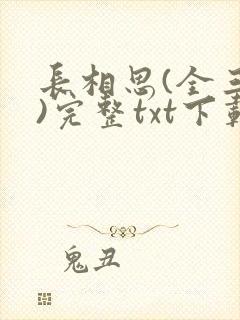 長相思(全三
)完整txt下載
鬼丑